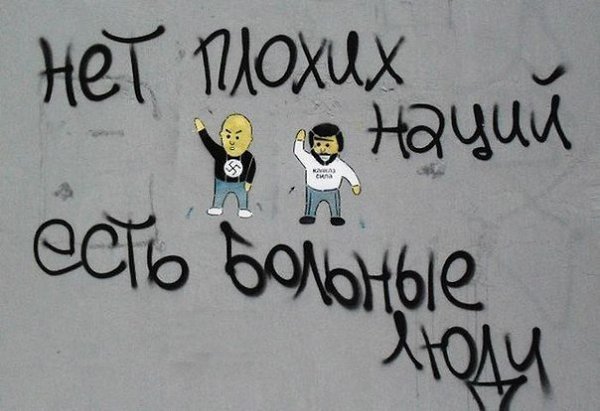 нет плохих
наций
КАВКАЗ
СИЛА
есть больные
люди